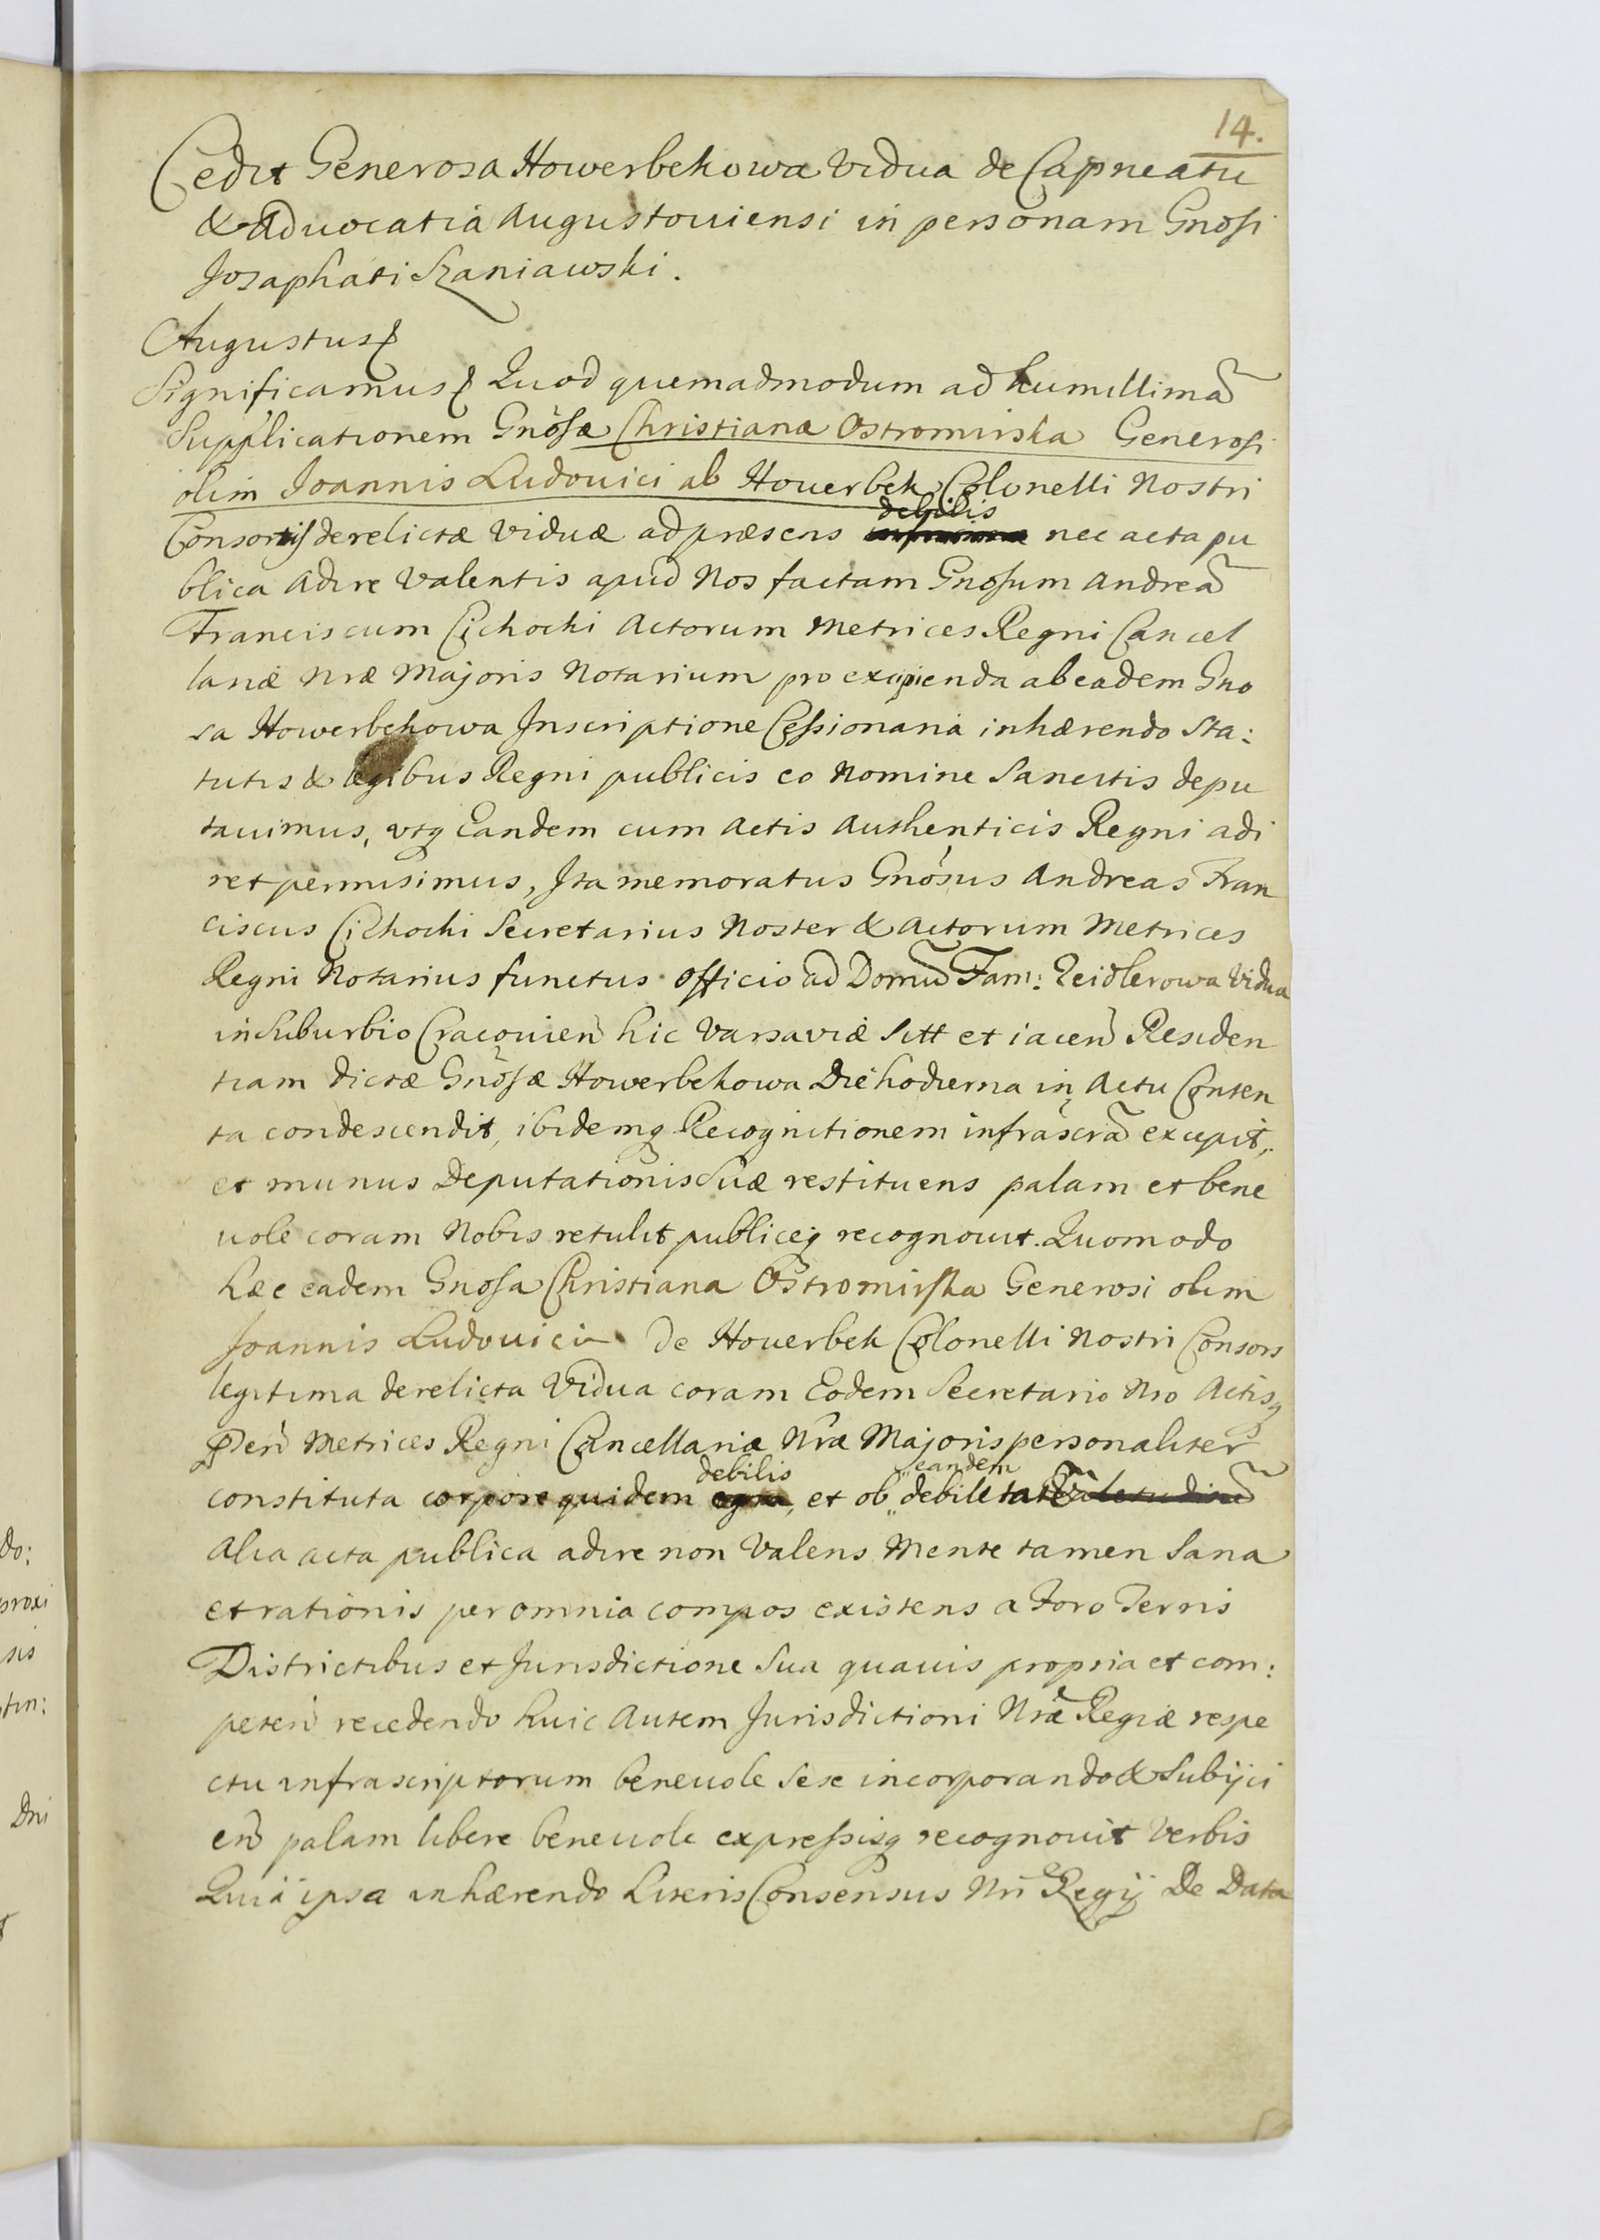 14.
Cedit Generosa Howerbekowa Vidua de Capneatu
& Advocatia Augustoviensi in personam Gnosi
Josaphati Szaniawski.
Augustus
Significamus Quod quemadmodum ad humillimã
Supplicationem Gnosæ Christianæ Ostromirska Generosi
olim Joannis Ludovici ab Houerbek Colonelli Nostri
Consortis derelictæ Viduæ ad præsens debilis nec acta pu
blica adire Valentis apud Nos factam Gnosum Andreã
Franciscum Cichocki Actorum Metrices Regni Cancel
lariæ Nræ Majoris Notarium pro excipienda ab eadem Gno
sa Howerbekowa Inscriptione Cessionaria inhærendo Sta:
tutis & legibus Regni publicis eo Nomine Sancitis depu
tauimus, utq Eandem cum Actis Authenticis Regni adi
ret permisimus, Ita memoratus Gnosus Andreas Fran
ciscus Cichocki Secretarius Noster & Actorum Metrices
Regni Notarius functus Officio ad Domũ Fam: Zeidlerowa Vidua
in Suburbio Cracovien hic Varsaviæ Sitt et iacen Residen
tiam dictæ Gnosæ Howerbekowa Die hodierna in Actu Conten
ta condescendit, ibidemq Recognitionem infrascrã excepit,
et munus Deputationis Suæ restituens palam et bene
uole coram Nobis retulit publiceq recognouit. Quomodo
hæc eadem Gnosa Christiana Ostromirska Generosi olim
Joannis Ludouici de Houerbek Colonelli Nostri Consors
legitima derelicta Vidua coram Eodem Secretario Nro Actisq
Pꝛen Metrices Regni Cancellariæ Nræ Majoris personaliter
constituta corpore quidem debilis, et ob eandem debilitatẽ
Alia acta publica adire non Valens Mente tamen Sana
et rationis per omnia compos existens a Foro Terris
Districtibus et Jurisdictione Sua quauis propria et com:
peten recedendo huic Autem Jurisdictioni Nræ Regiæ respe
ctu infrascriptorum beneuole Sese incorporando & Subijci
en palam libere beneuole expressisq recognouit Verbis
Quia ipsa inhærendo Literis Consensus Nri Regij De Data